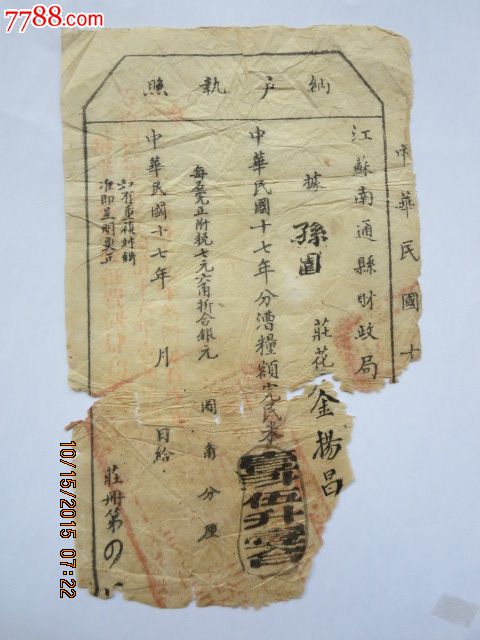 7788.com
納戶執照
中華民國十
江蘇南通縣財政局
據孫園莊花
金揚昌
中華民國十七年分漕糧額完民米
伍升
每石完正附税七元六角折合銀元
圓角分厘
中華民國十七年 月 日給
如有重領
准即呈明更正
莊册第
10/15/2015 07:22